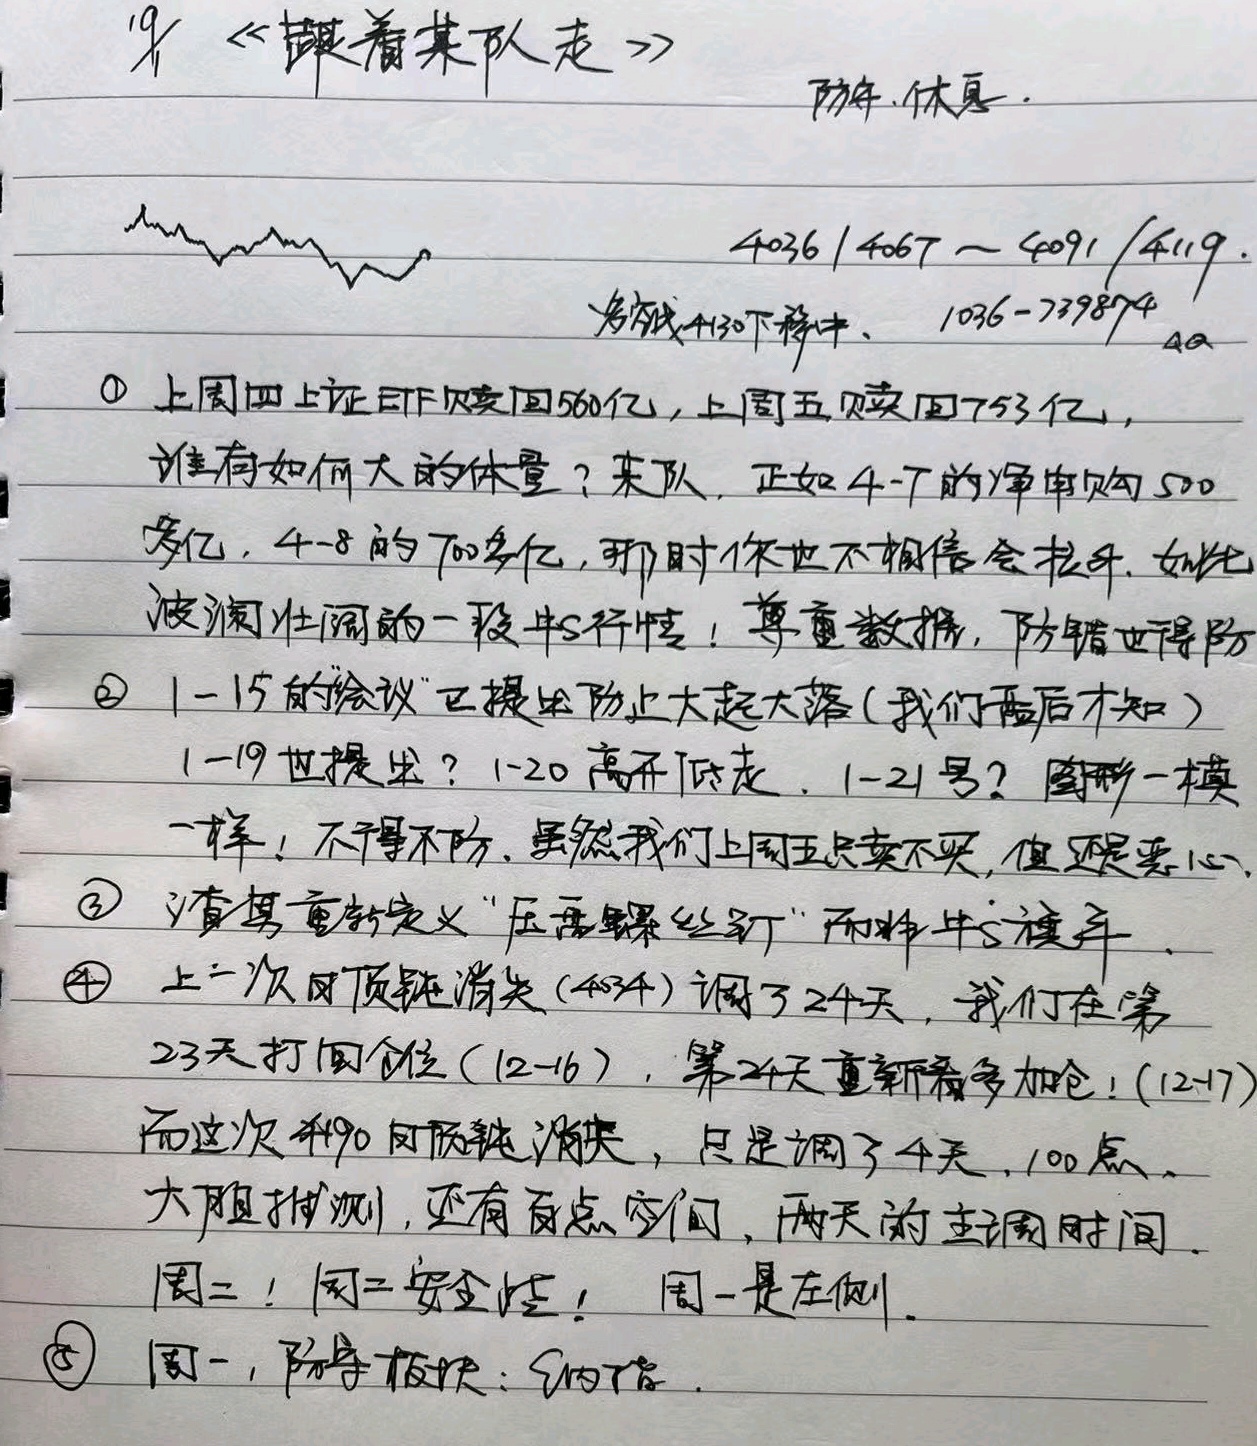 19/1 《跟着某队走》
防守、休息.
4036/4067～4091/4119.
多空线4130下移中、 1036-739874
① 上周四上证ETF赎回560亿，上周五赎回753亿，
谁有如何大的体量？某队. 正如4-7的净申购500
多亿，4-8的700多亿，那时你也不相信会拉升、如此
波澜壮阔的一段牛S行情！尊重数据，防错也得防
② 1-15的"会议"已提出防止大起大落（我们盘后才知）
1-19也提出？1-20高开低走、1-21号？图形一模
一样！不得不防、虽然我们上周五只卖不买，但还是恶心、
③ 渣男重新定义"压盘螺丝钉"而将牛S换弃、
④ 上一次时顶钝消失（4034）调了24天，我们在第
23天打回仓位（12-16），第24天重新看多加仓！（12-17）
而这次4190时顶钝消失，只是调了4天、100点、
大胆推测，还有百点空间，两天的主调时间.
周二！周二安全性！ 周一是左侧.
⑤ 周一，防守板块：